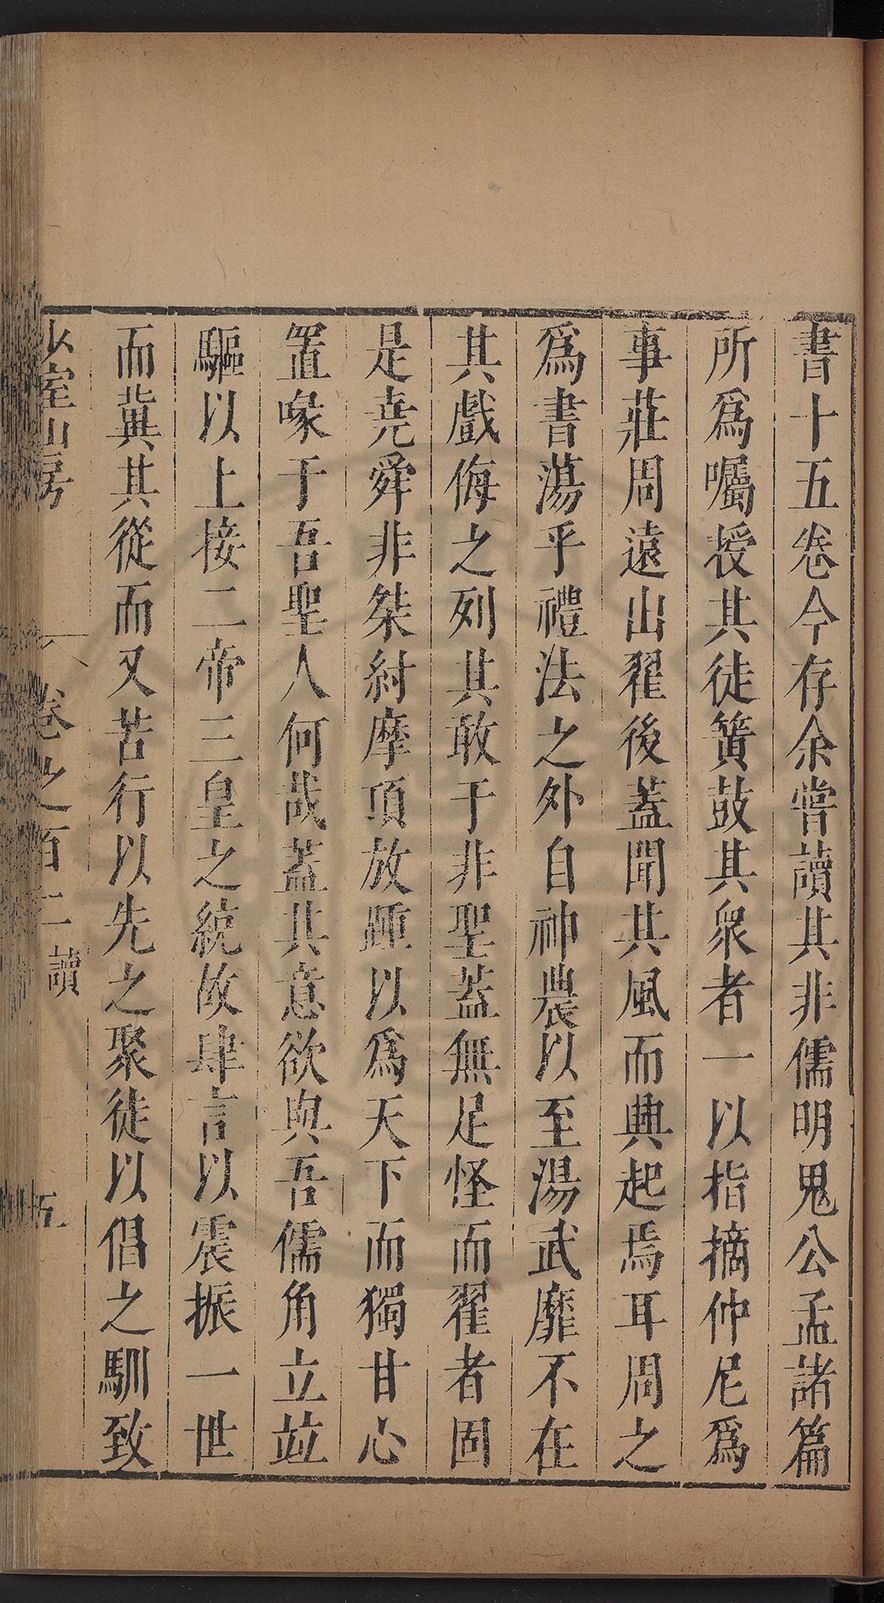 書十五卷今存余嘗讀其非儒明鬼公孟諸篇
所爲囑授其徒簧鼓其衆者一以指摘仲尼爲
事莊周遠出翟後蓋聞其風而興起焉耳周之
爲書蕩乎禮法之外自神農以至湯武靡不在
其戲侮之列其敢于非聖蓋無足怪而翟者固
是堯舜非桀紂摩頂放踵以爲天下而獨甘心
置喙于吾聖人何哉蓋其意欲與吾儒角立竝
驅以上接二帝三皇之統故肆言以震振一世
而冀其從而又苦行以先之聚徒以倡之馴致
少室山房 卷之百二 讀 五